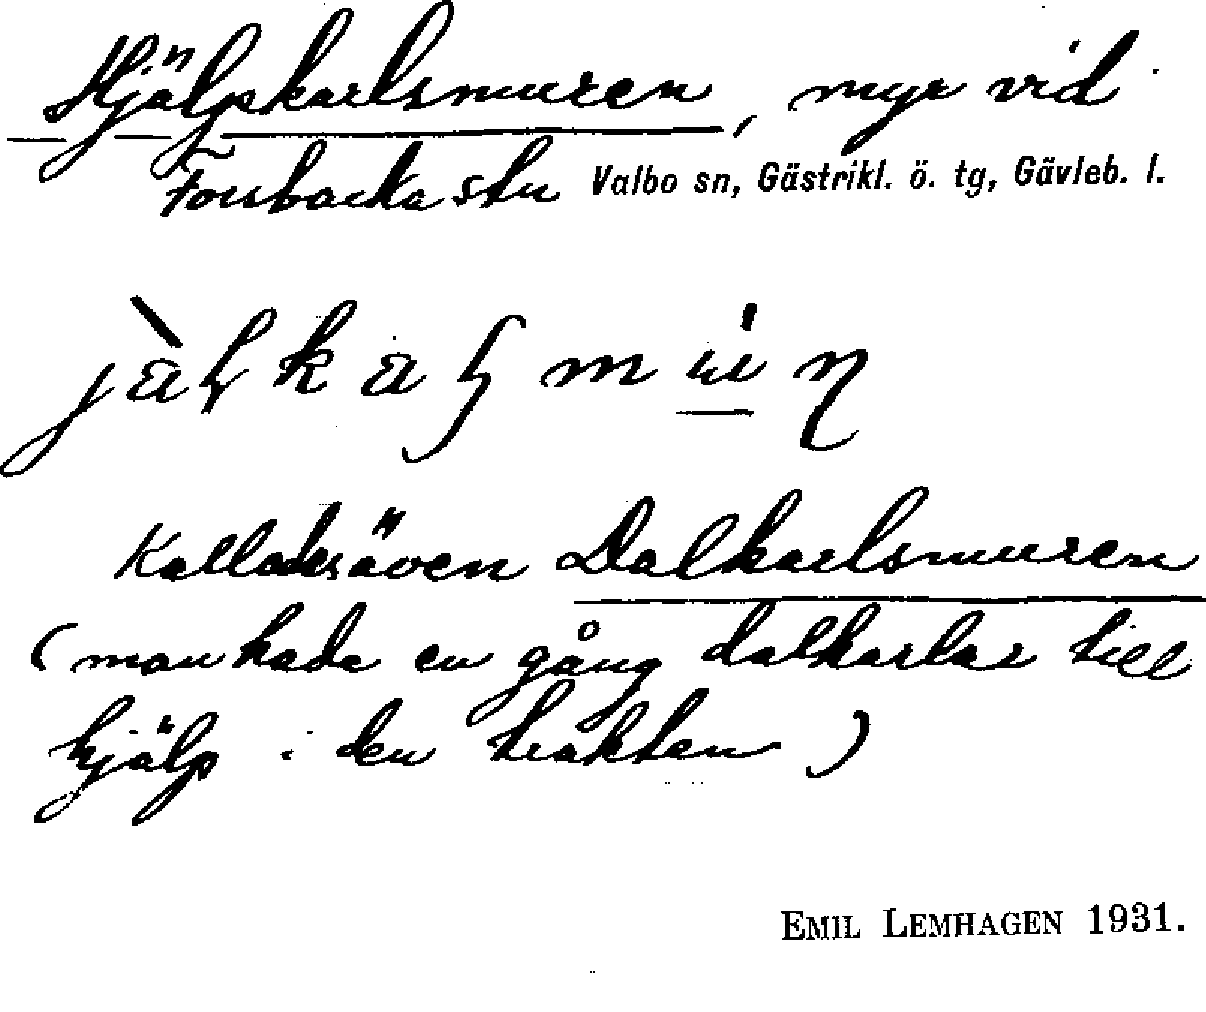 Hjälpkarlsmuren, myr vid
Forsbacka stn Valbo sn, Gästrikl. ö. tg, Gävleb. l.
Kallades även Dalkarlsmuren
(man hade en gång dalkarlar till
hjälp i den trakten)
EMIL LEMHAGEN 1931.